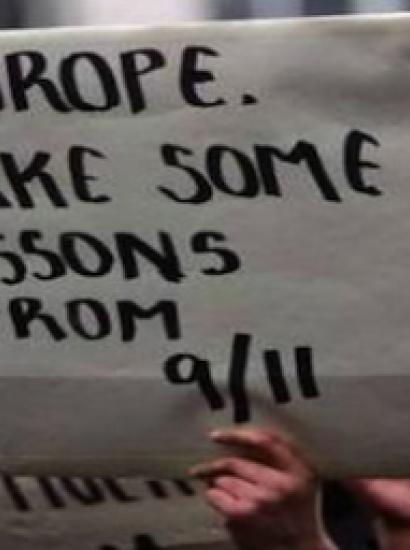 ROPE.
KE SOME
SSONS
ROM
9/11